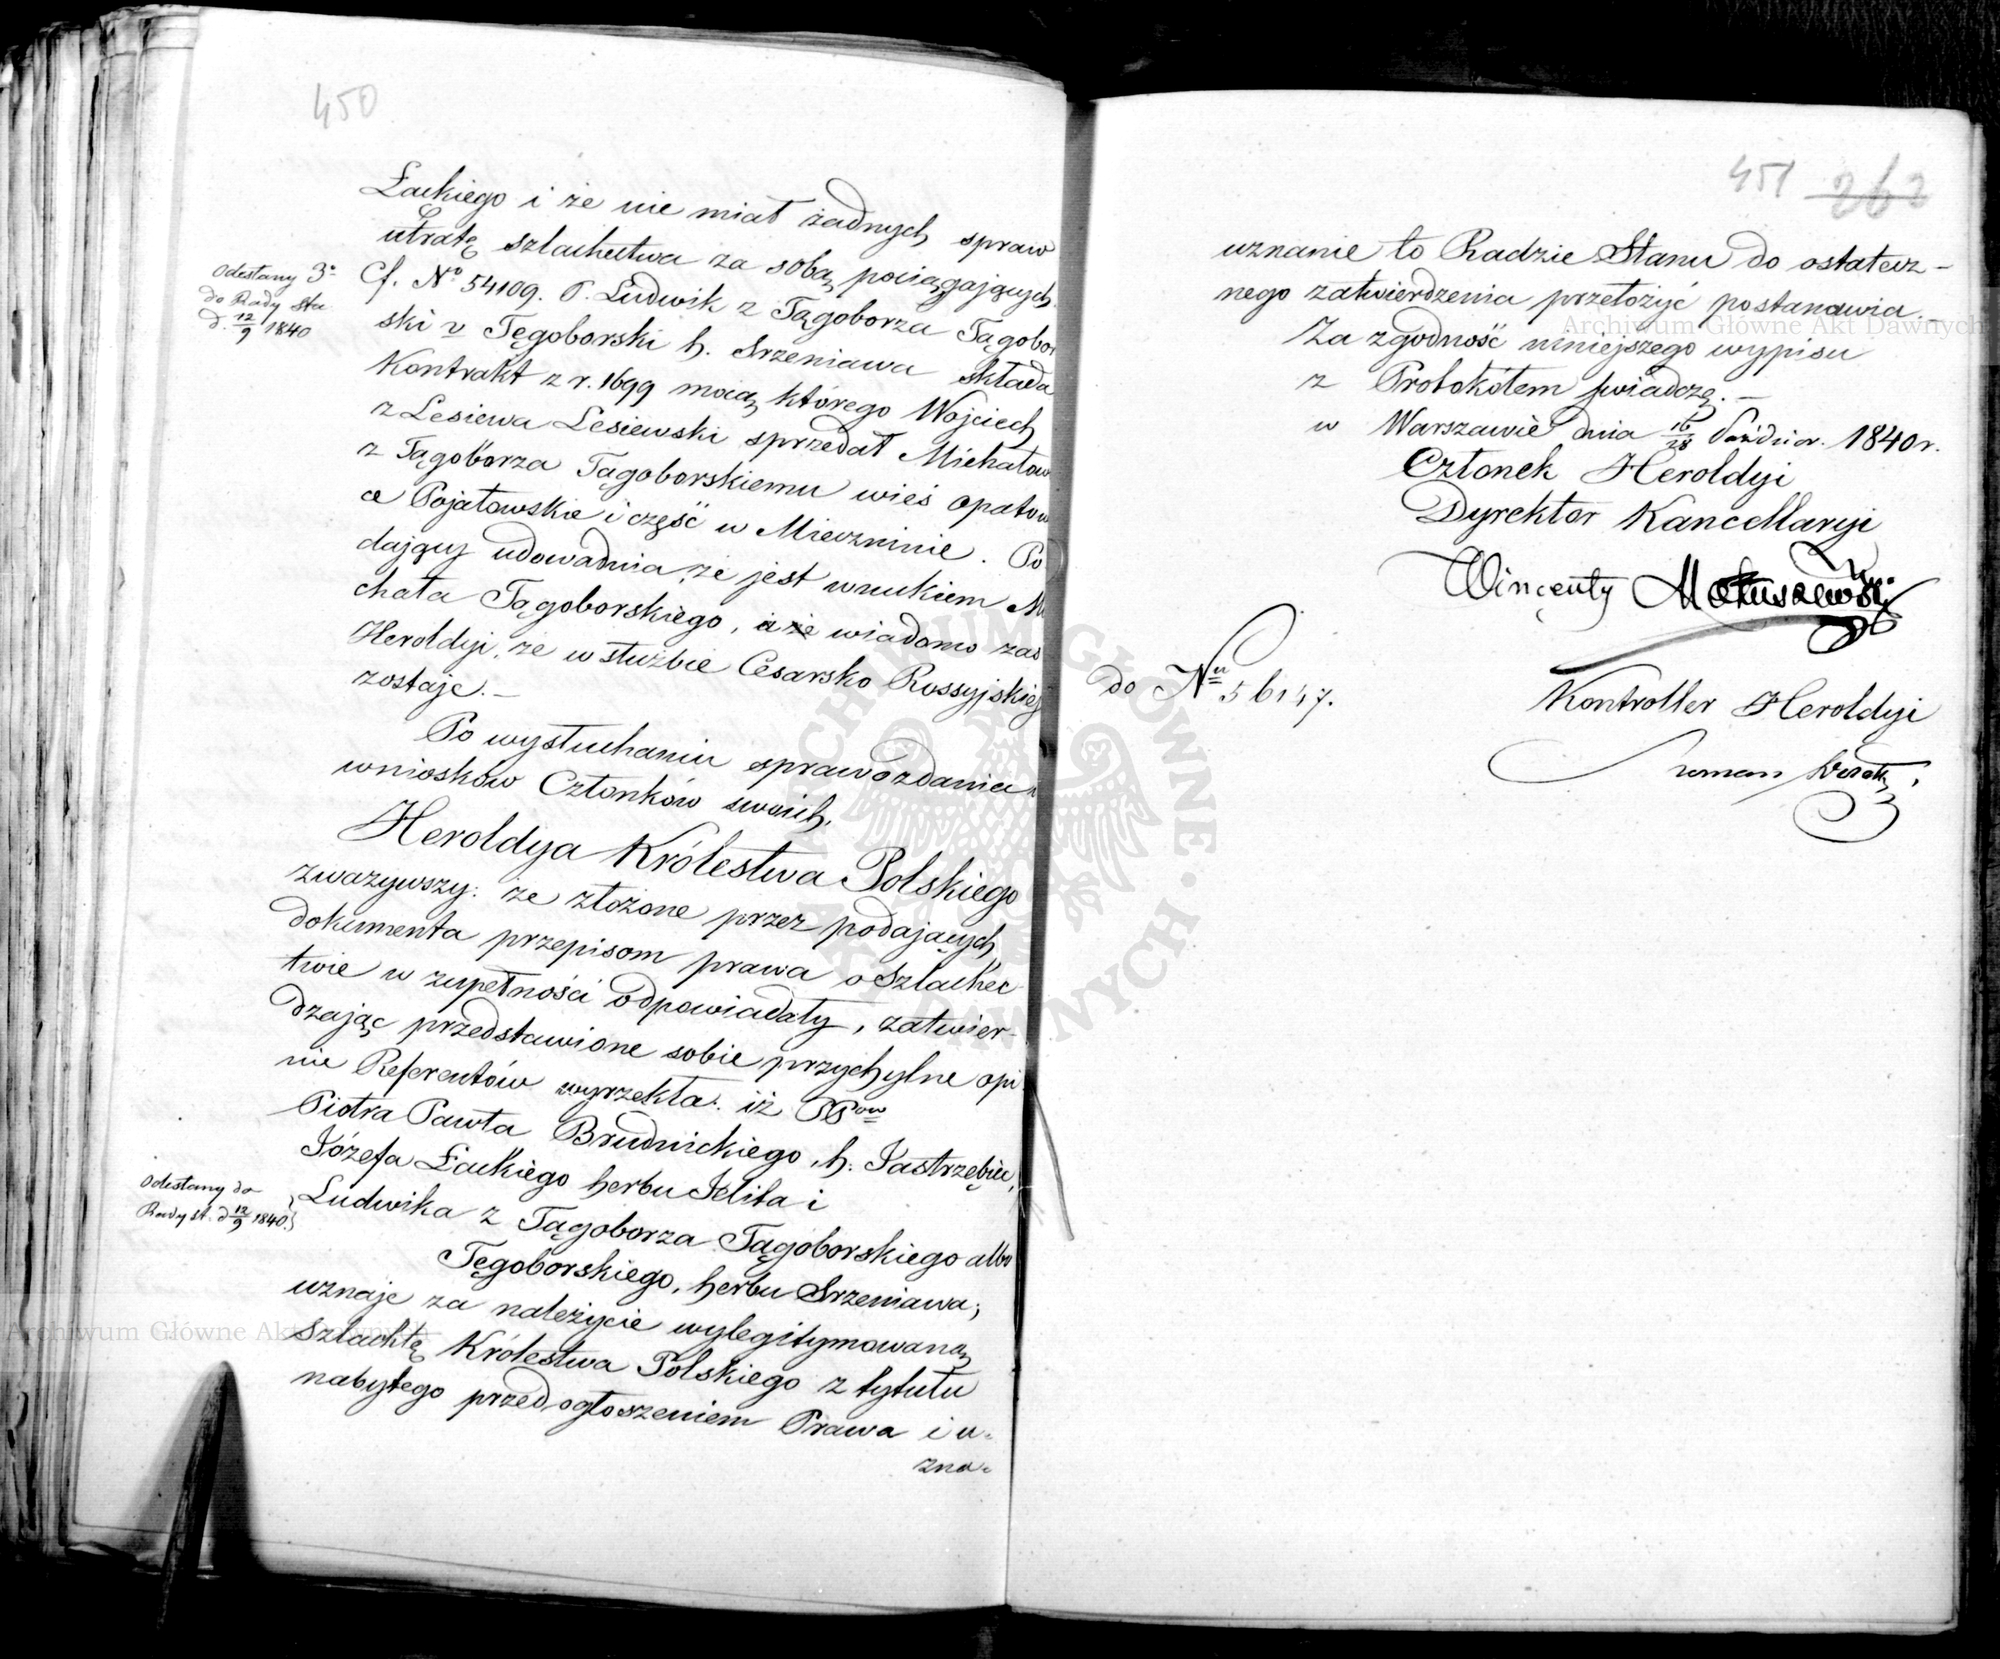 450
Łackiego i że nie miał żadnych spraw
utratę szlachectwa za sobą pociągających.
Odesłany 3o
do Rady Sta
d. 12/9 1840
Cf. No 54109. P. Ludwik z Tągoborza Tągobor
ski v Tęgoborski h. Srzeniawa składa
Kontrakt z r. 1699 mocą którego Wojciech
z Lesiewa Lesiewski sprzedał Michałow
z Tągoborza Tągoborskiemu wieś Opatow
ce Pojałowskie i część w Miewzninie. Po
dający udowadnia, że jest wnukiem Mi
chała Tągoborskiego, a że wiadomo zaś
Heroldyi, że w służbie Cesarsko Rossyjskiej
zostaje. –
Po wysłuchaniu sprawozdania
wniosków Członków swoich,
Heroldya Królestwa Polskiego
zważywszy: że złożone przez podających
dokumenta przepisom prawa o Szlachec
twie w zupełności odpowiadały, zatwier-
dzając przedstawione sobie przychylne opi
nie Referentów wyrzekła: iż PPow
Piotra Pawła Brudnickiego, h. Jastrzębiec,
Józefa Łackiego herbu Jelita i
Odesłany do
Rady St. d 12/9 1840.
Ludwika z Tągoborza Tągoborskiego albo
Tęgoborskiego, herbu Srzeniawa;
uznaje za należycie wylegitymowaną
Szlachtę Królestwa Polskiego z tytułu
nabytego przed ogłoszeniem Prawa i u-
zna-
451 262
uznanie to Radzie Stanu do ostatecz-
nego zatwierdzenia przełożyć postanawia. –
Za zgodność niniejszego wypisu
z Protokółem świadczę. –
w Warszawie dnia 16/28 Paździer. 1840 r.
Członek Heroldyi
Dyrektor Kancellaryi
Wincenty Matuszewski
do Nu 56147.
Kontroller Heroldyi
Roman
Archiwum Główne Akt Dawnych
Archiwum Główne Akt Dawnych
ARCHIWUM GŁÓWNE AKT DAWNYCH